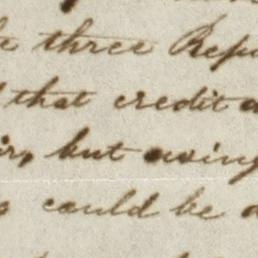 three Repu
that credit a
but owing
could be d